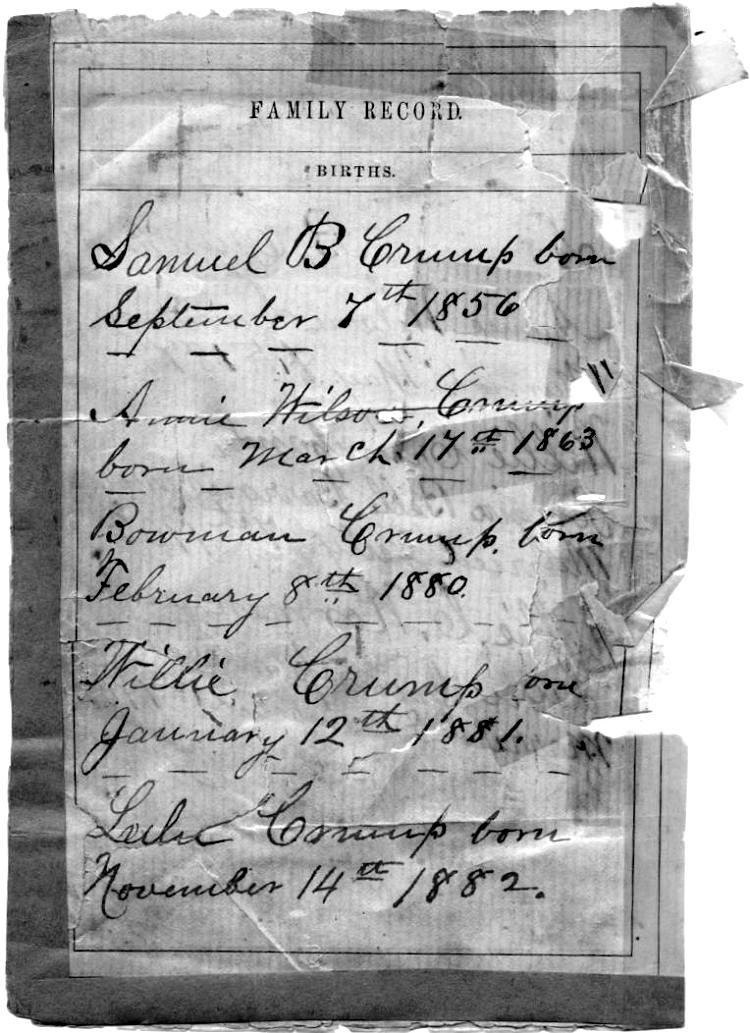 FAMILY RECORD.
BIRTHS.
Samuel B Crump born
September 7th 1856
Annie Wilson, Crump
born March. 17th 1863
Bowman Crump. born
February 8th 1880.
Willie Crump
January 12th 1881.
Lula Crump born
November 14th 1882.